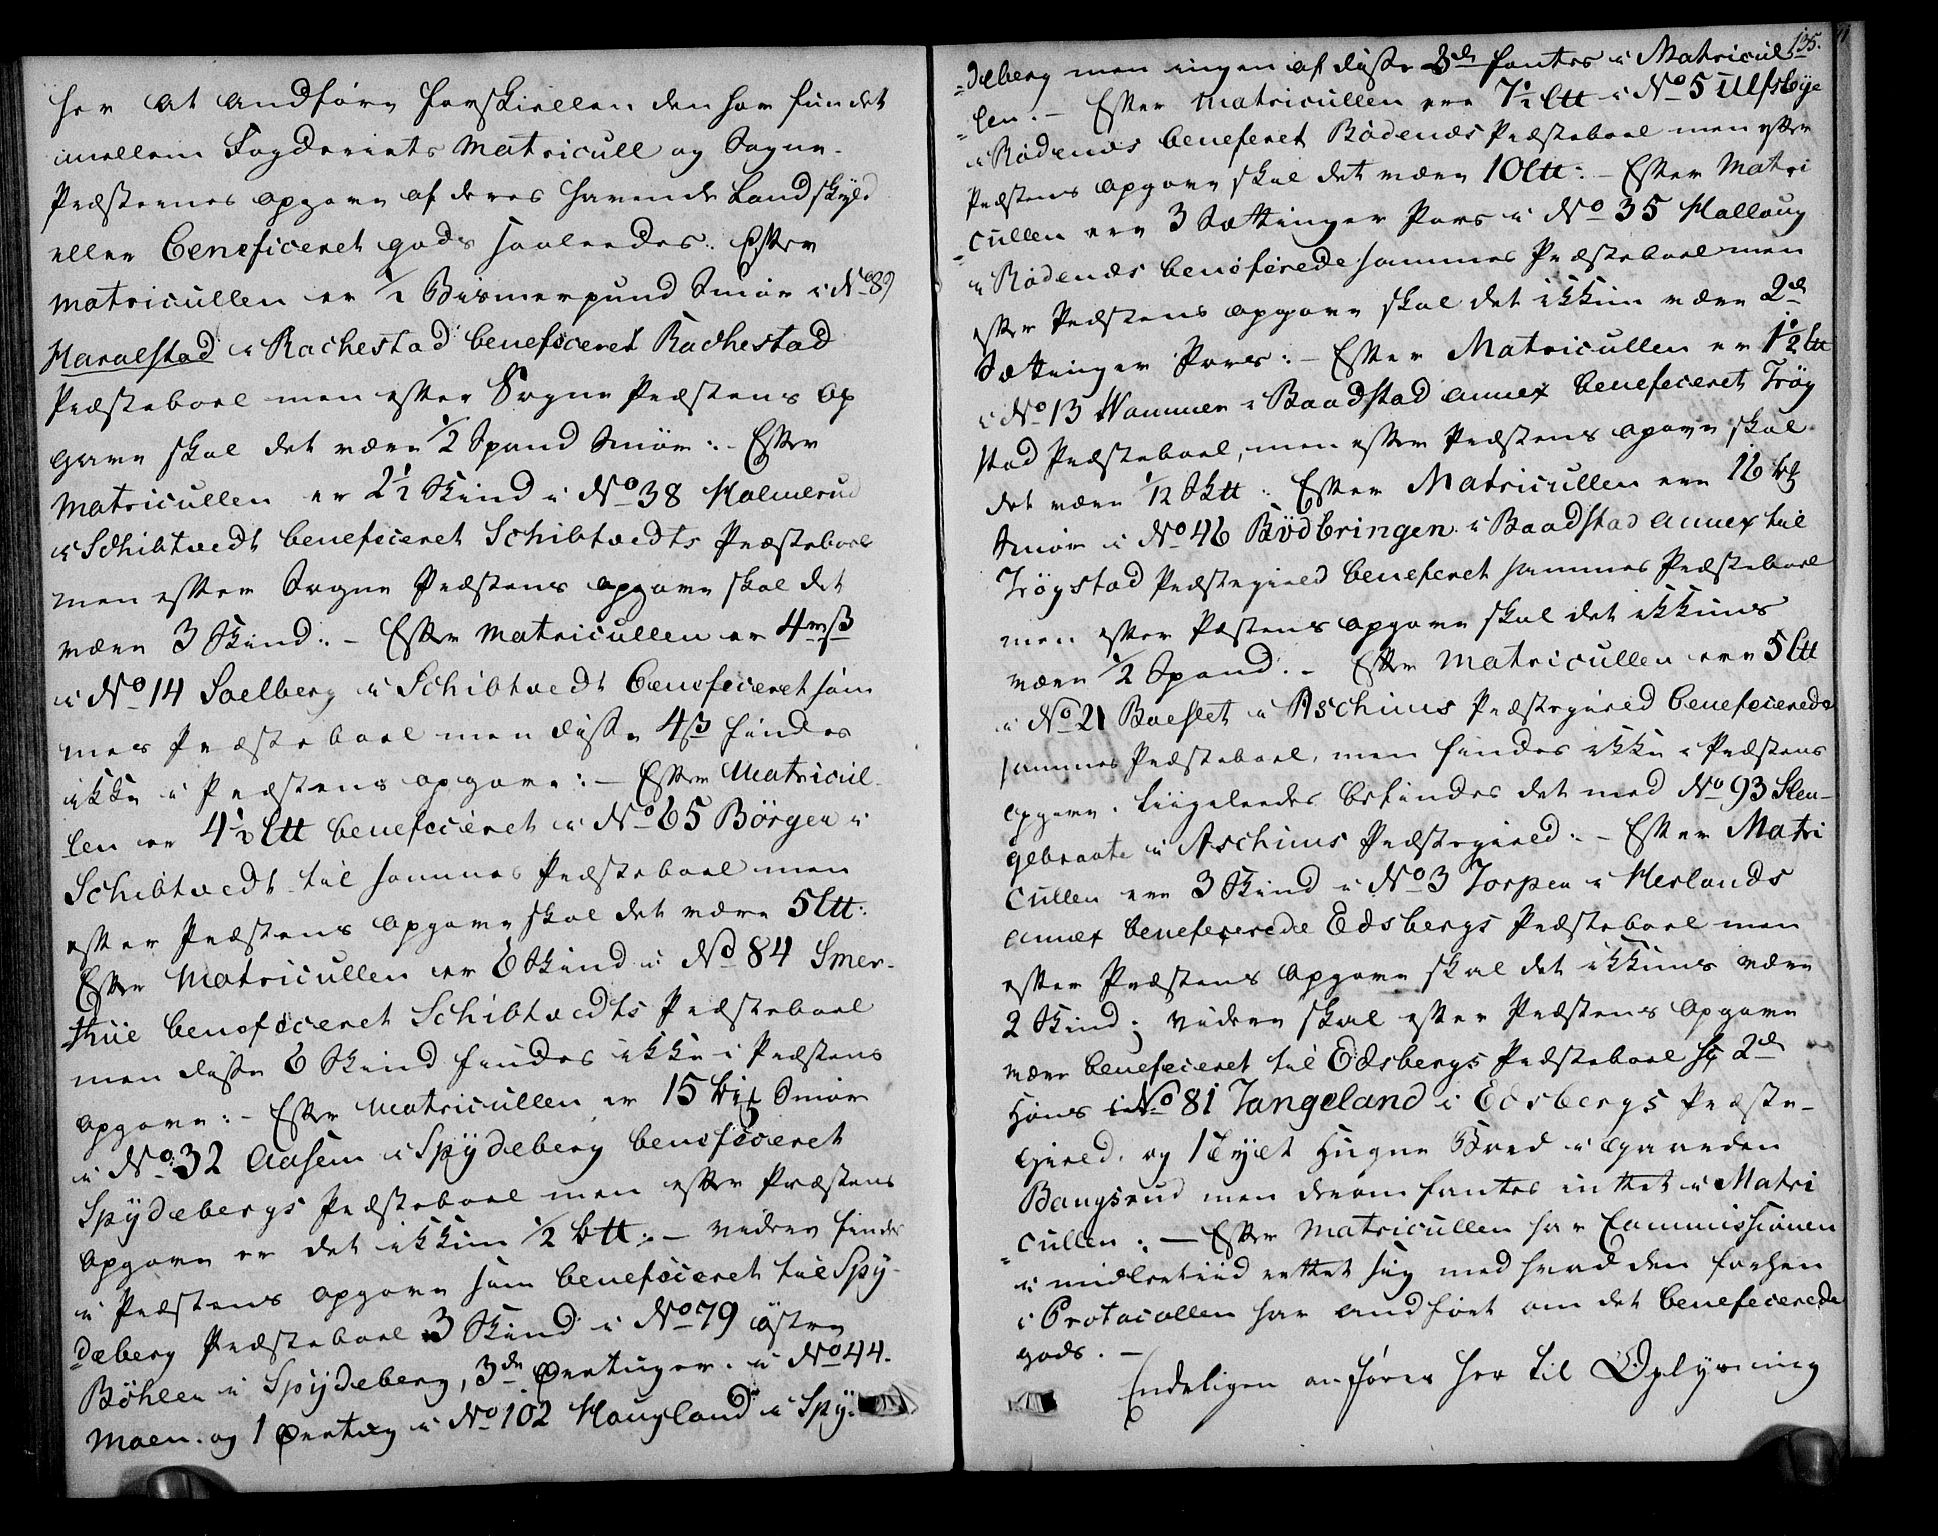 her at andføre forskiellen den har fundet
imellem Fogderiets Matricull og Sogne-
Præsternes opgave af deres havende Landskyld
eller Beneficeret gods saaleedes. Efter
Matricullen er 1/2 Bismerpund Smør i No 89
Haralstad i Rachestad beneficeret Rachestad
Præsteboel men efter Sogne Præstens Op
gave skal det være 1/2 Spand Smør :- Efter
Matricullen er 2 1/2 Skind i No 38 Holmerud
i Schibtvedt beneficeret Schibtvedts Præsteboel
men efter Sogne Præstens opgave skal det
være 3 Skind :- Efter Matricullen er 4 ß
i No 14 Soelberg i Schibtvedt beneficeret sam
mes Præsteboel men disse 4 ß findes
ikke i Præstens opgave :- Efter Matricul-
len er 4 1/2 Ltt beneficeret i No 65 Börgen i
Schibtvedt til sammes Præsteboel men
efter Præstens opgave skal det være 5 Ltt:
Efter Matricullen er 6 Skind i No 84 Smer-
thue beneficeret Schibtvedts Præsteboel
men disse 6 Skind findes ikke i Præstens
opgave :- Efter Matricullen er 15 Smør
i No 32 Aasem i Spÿdeberg beneficeret
Spÿdebergs Præsteboel men efter Præstens
opgave er det ikkun 1/2 Ltt :- videre findes
i Præstens opgave som beneficeret til Spÿ-
deberg Præsteboel 3 Skind i No 79 østre
Böhlen i Spÿdeberg, 3de Ørtuger i No 44.
Moen og 1 Ørtug i No 102 Hougland i Spÿ-
135.
=deberg men ingen af disse 3de fantes i Matricul-
=len. - Efter Matricullen ere 7 1/2 Ltt i No 5 Ulfsbÿe
i Rødenæs beneficeret Rødenæs Præsteboel men efter
Præstens opgave skal det være 10 Ltt :- Efter Matri
=cullen ere 3 Sættinger Pors i No 35 Hallaug
i Rødenæs beneficerede sammes Præsteboel men
efter Præstens opgave skal det ikkun være 2de
Sættinger Pors :- Efter Matricullen er 1 1/2 Ltt
i No 13 Hammer i Baadstad annex beneficeret Trög
stad Præsteboel, men efter Præstens opgave skal
det være 1/2 Sktt : Efter Matricullen ere 16
Smør i No 46 Bødbringen i Baadstad annex til
Trögstad Præstegield beneficeret sammes Præsteboel
men efter Præstens opgave skal det ikkuns
være 1/2 Spand :- Efter Matricullen ere 5 Ltt
i No 21 Boeslet i Aschims Præstegield beneficerede
sammes Præsteboel, men findes ikke i Præstens
opgave. Liigeleedes befindes det med No 93 Slen-
gebraate i Aschims Præstegield :- Efter Matri
cullen ere 3 Skind i No 3 Torper i Herlands
annex beneficerede Edsbergs Præsteboel men
efter Præstens Opgave skal det ikkuns være
2 Skind ; videre skal efter Præstens Opgave
være beneficeret til Edsbergs Præsteboel 2de
Høns i No 81 Tangeland i Edsbergs Præste-
gield, og 1 Hugne Bord i Gaarden
Bangsrud men derom fantes intet i Matri
=cullen :- Efter Matricullen har Commissionen
i midlertiid rettet sig med hvad den forhen
i Protocollen har andført om det beneficerede
gods. -
Endeligen anføres her til Oplysning